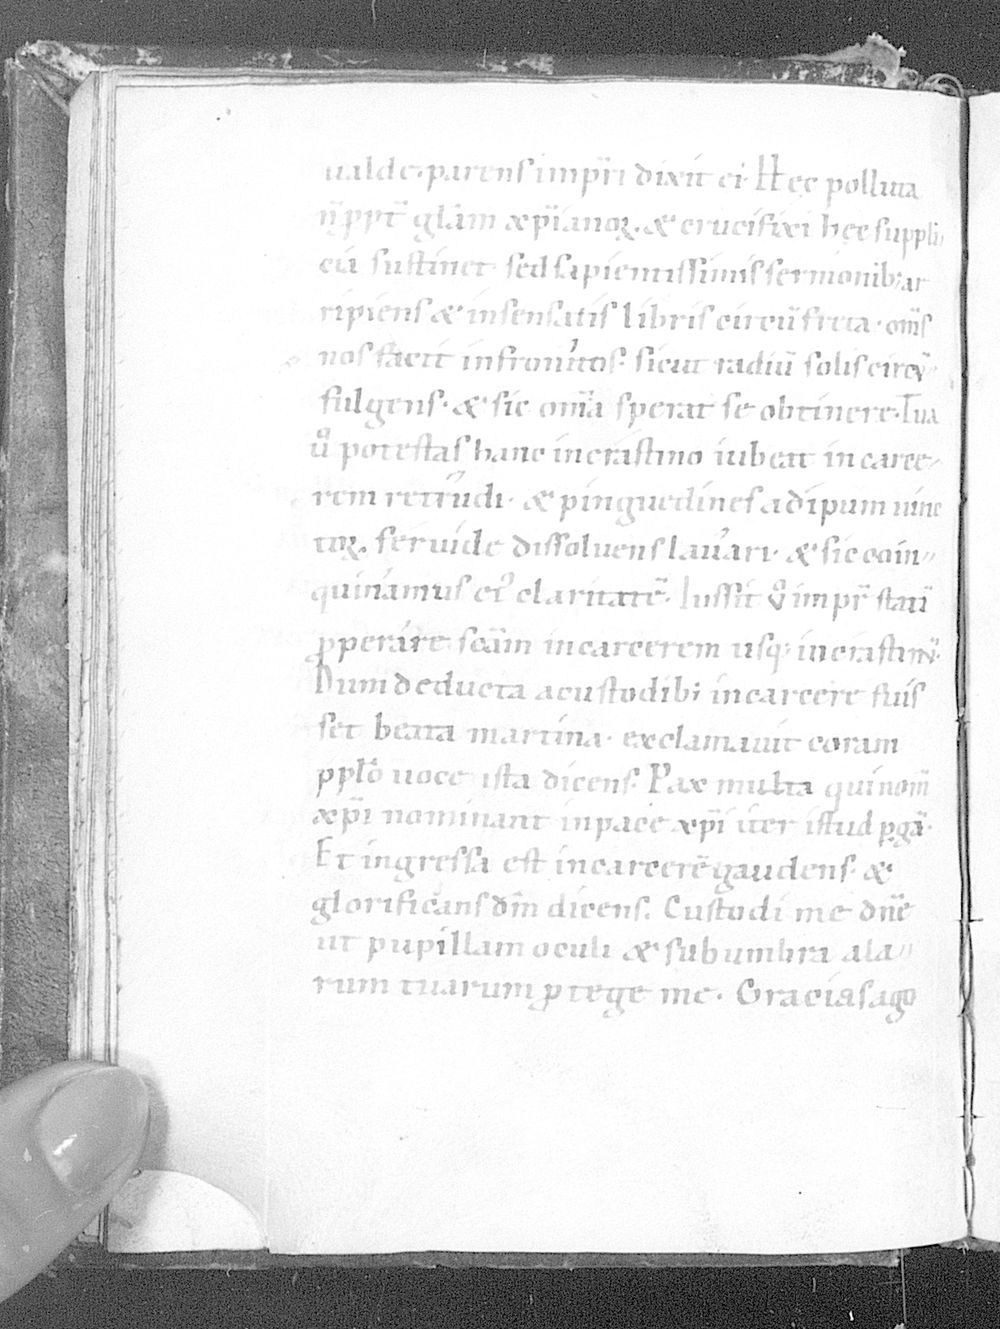 ualde. parens imp̃ri dixit ei. Hec polluta
n̄ ꝓpt̃ gl̃am xp̃ianoꝝ. & crucifixi hęc suppli
cia sustinet. sed sapientissimis sermonib; ar
ripiens & insensatis libris circũfreta. om̃s
nos facit infronitos. sicut radiũ solis circũ-
fulgens. & sic om̃ia sperat se obtinere. Tua
ũ potestas hanc incrastino iubeat in carce-
rem retrudi. & pinguedines adipum uinc
toꝝ. feruide dissoluens lauari. & sic coin-
quinamus ei᾽ claritatẽ. Iussit ũ imp̃r statĩ
ꝓperare sc̃am incarcerem usq; incrastinũ.
Dum deducta a custodib; incarcere fuis
set beata martina. exclamauit coram
pp̃lo uoce ista dicens. Pax multa qui nom̃
xp̃i nominant inpace xp̃i iter istud ꝑgã.
Et ingressa est incarcerẽ gaudens. &
glorificans dm̃ dicens. Custodi me dñe
ut pupillam oculi & sub umbra ala-
rum tuarum ꝓtege me. Gracias ago